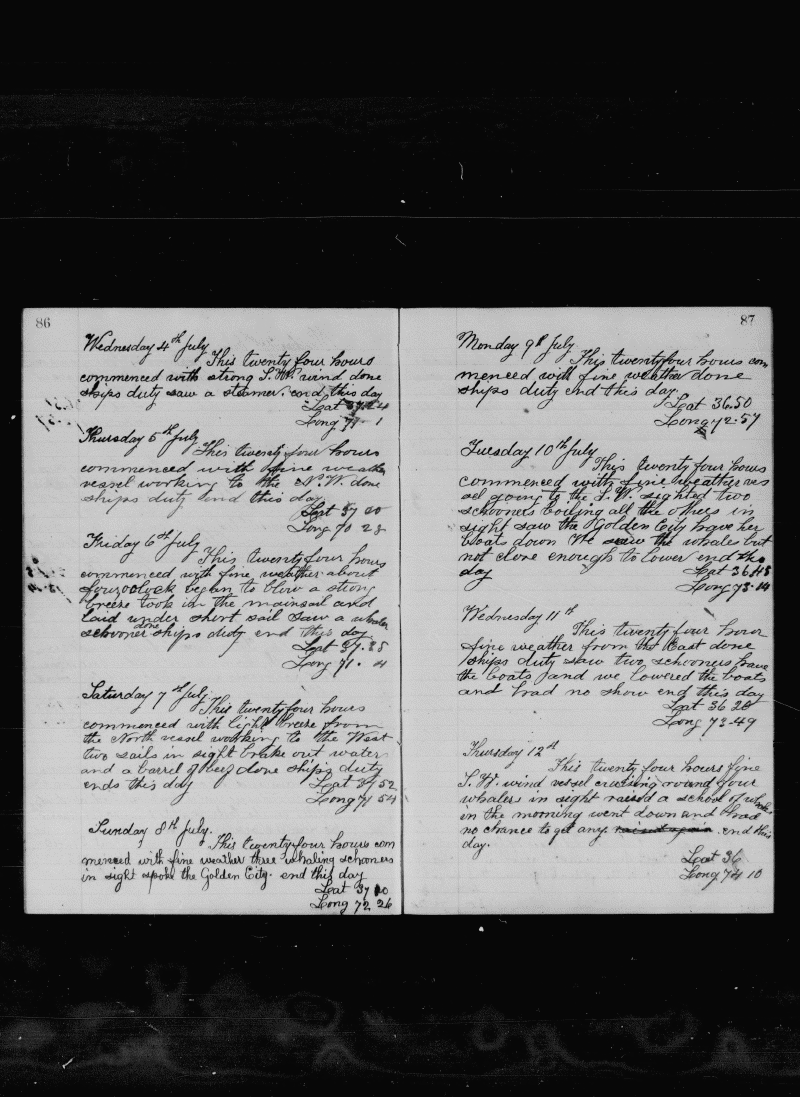 86
Wednesday 4th July
This twenty four hours
commenced with strong S.W. wind done
ships duty saw a steamer. end this day
Lat 37.24
Long 71 1
Thursday 5th July
This twenty four hours
commenced with fine weather
vessel working to the N.W. done
ships duty end this day
Lat 37 00
Long 70 28
Friday 6th July
This twenty four hours
commenced with fine weather about
four oclock began to blow a strong
breeze took in the mainsail and
laid under short sail saw a whalen
schooner done ships duty end this day
Lat 37.38
Long 71. 4
Saturday 7th July
This twenty four hours
commenced with light breeze from
the North vessel working to the West
two sails in sight brake out water
and a barrel of beef done ships duty
ends this day
Lat 37 52
Long 71 54
Sunday 8th July.
This twenty four hours com
menced with fine weather three whaling schooners
in sight spoke the Golden City. end this day
Lat 37 10
Long 72 26
87
Monday 9th July
This twenty four hours com
menced with fine weather done
ships duty end this day.
Lat 36.50
Long 72.57
Tuesday 10th July
This twenty four hours
commenced with fine weather ves
sel going to the S.W. sighted two
schooners boiling all the others in
sight saw the Golden City have her
boats down We saw the whales but
not close enough to lower end this
day
Lat 36.48
Long 73.14
Wednesday 11th
This twenty four hour
fine weather from the East done
ships duty saw two schooners have
the boats and we lowered the boats
and had no show end this day
Lat 36 28
Long 73.49
Thursday 12th
This twenty four hours fine
S.W. wind vessel cruising round four
whalers in sight raised a school of whales
in the morning went down and had
no chance to get any. end this
day.
Lat 36
Long 74 10